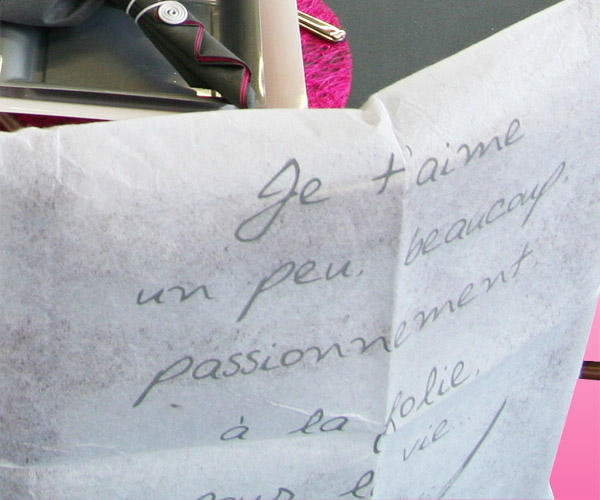 Je t'aime
un peu, beaucoup,
passionnement,
à la folie,
pour la vie...